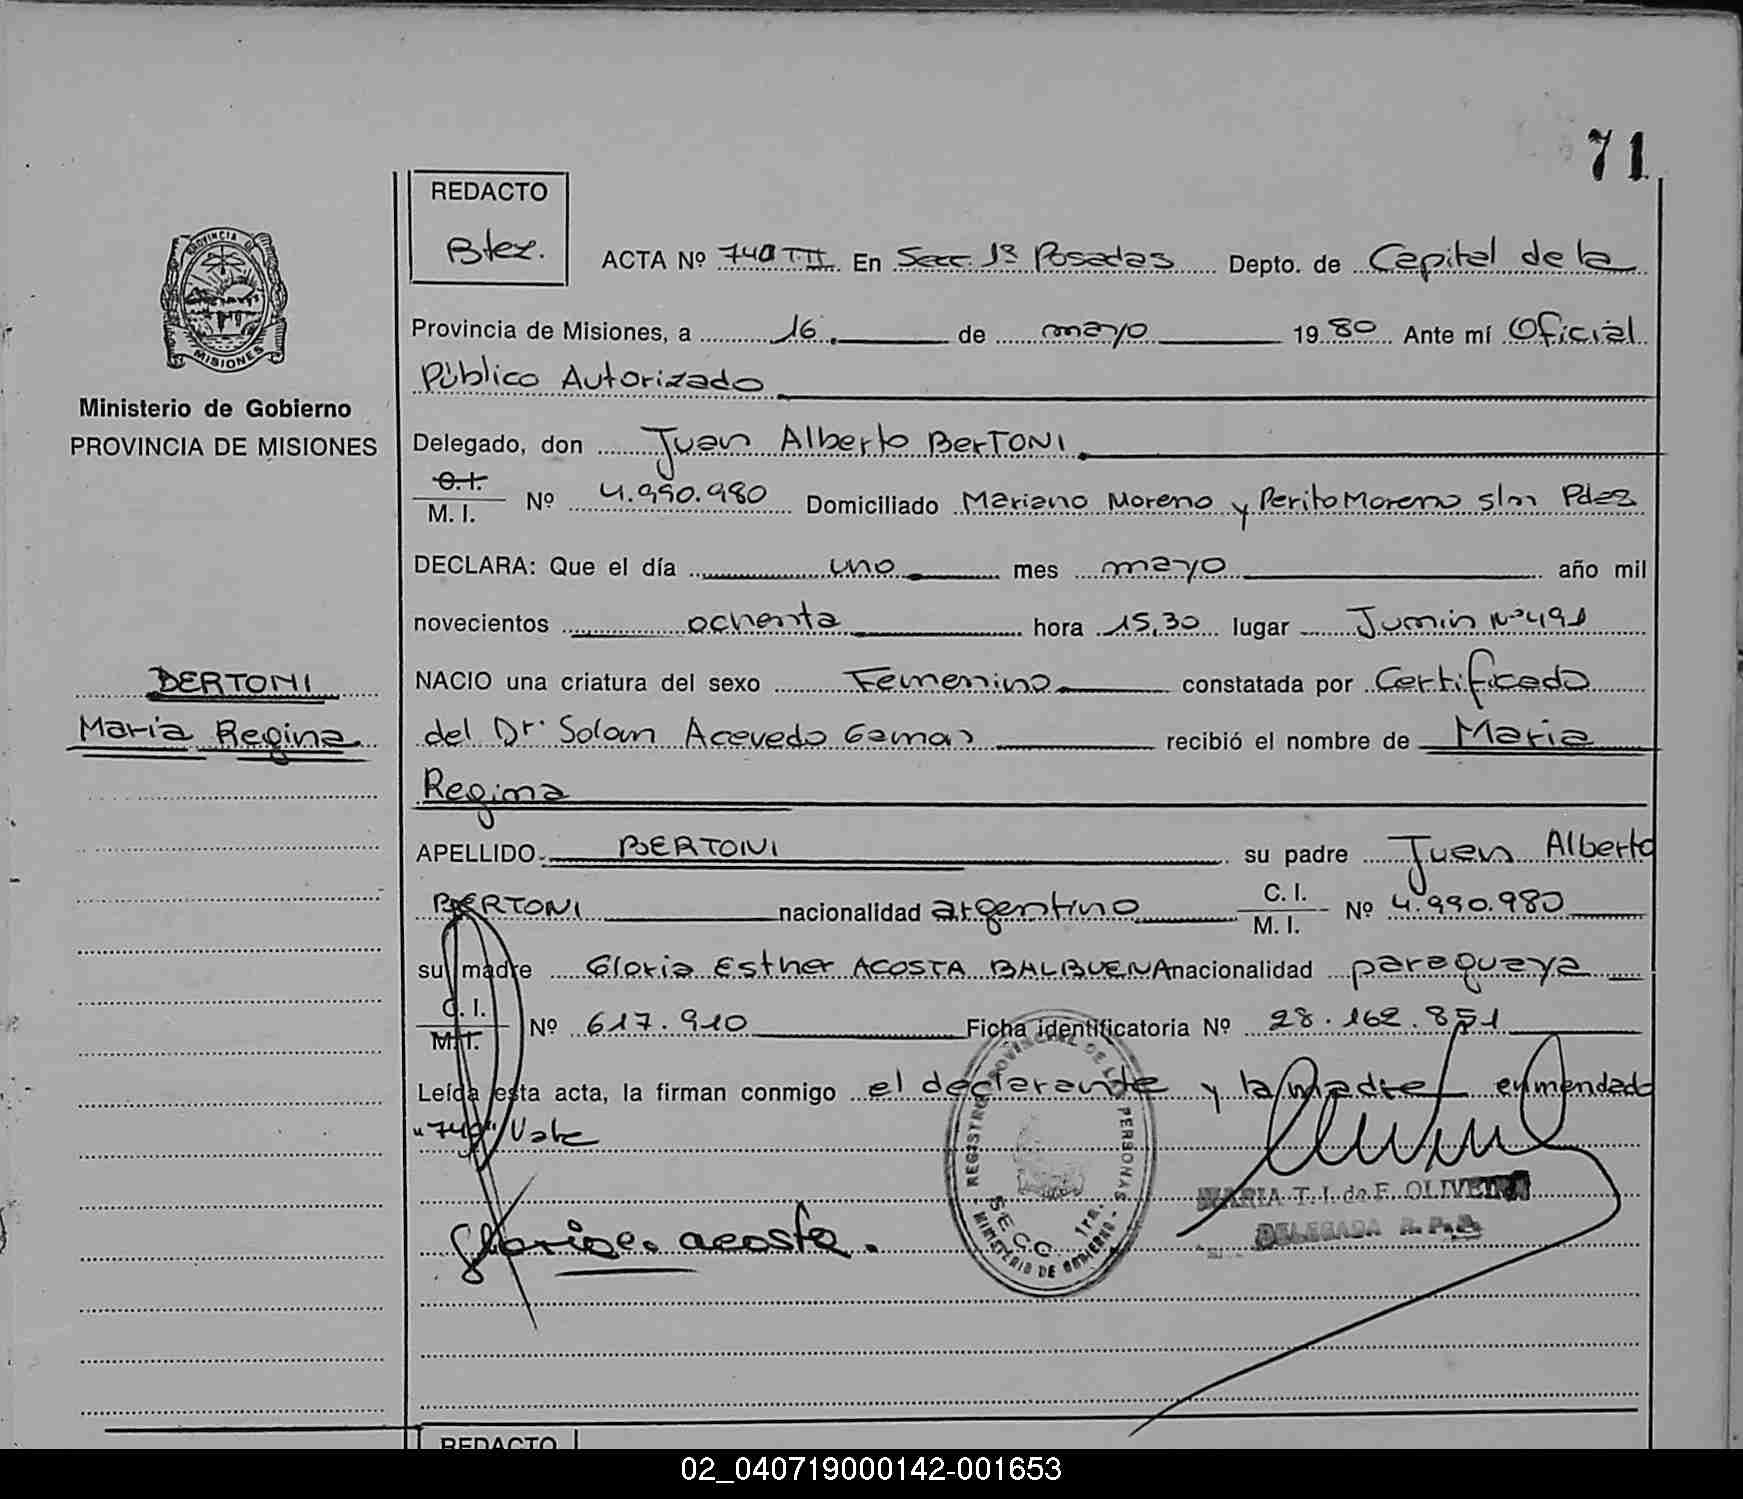 71
REDACTO
Btez.
ACTA Nº 740 T.II. En Secc. 1ª Posadas Depto. de Capital de la
Provincia de Misiones, a 16. de mayo 19 80 Ante mí Oficial
Público Autorizado
Delegado, don Juan Alberto BERTONI.
C. I.
M. I. Nº 4.990.980 Domiciliado Mariano Moreno y Perito Moreno s/n Pdas
DECLARA: Que el día uno mes mayo año mil
novecientos ochenta hora 15,30 lugar Junin Nº 491
NACIO una criatura del sexo Femenino constatada por Certificado
del Dr. Solan Acevedo Gamas recibió el nombre de Maria
Regina
APELLIDO BERTONI su padre Juan Alberto
BERTONI nacionalidad argentino C. I.
M. I. Nº 4.990.980
su madre Gloria Esther ACOSTA BALBUENA nacionalidad paraguaya
C. I.
M. I. Nº 617.910 Ficha identificatoria Nº 28.162.851
Leída esta acta, la firman conmigo el declarante y la madre enmendado
"740" Vale
Gloria e. acosta.
REGISTRO PROVINCIAL DE LAS PERSONAS
SECC. 1ra.
MINISTERIO DE GOBIERNO
MARIA T. I. de F. OLIVEIRA
DELEGADA R. P. P.
PROVINCIA DE
MISIONES
Ministerio de Gobierno
PROVINCIA DE MISIONES
BERTONI
Maria Regina
REDACTO
02_040719000142-001653